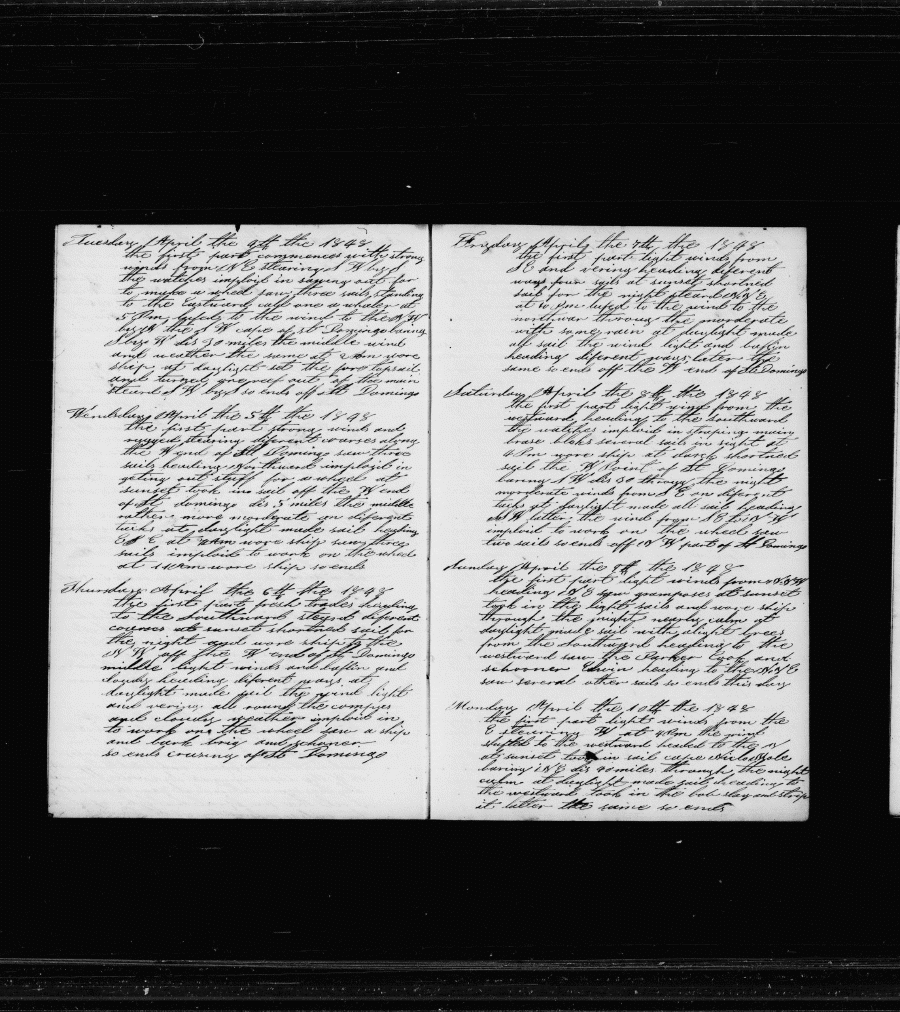 Tuesday April the 4th the 1848
the first part commences with strong
winds from N E stearing S W by S
the watches imploid in sawing out for
to make a wheel saw three sails standing
to the Eastward call one a whaler at
5 Pm lufed to the wind to the N W
by N the S W cape of St Domingo baring
N by W dis 30 miles the middle wind
and weather the same at 2 Am wore
ship at daylight set the fore topsail
and turned one reef out of the main
steard S W by S so ends off St Domingo
Wendsday April the 5th the 1848
the first part strong winds and
rugged stearing diferent courses along
the W end of St Domingo saw three
sails heading Northward imploid in
geting out stuff for a wheel at
sunset took in sail off the W end
of St domingo dis 5 miles the middle
rather more moderate on diferent
tacks at daylight made sail heading
E S E at Am wore ship saw three
sails imploid to work on the wheel
at 11 Am wore ship so ends
Thursday April the 6th the 1848
the first part fresh trades heading
to the Southward steard diferent
courses at sunset shortned sail for
the night and wore ship to the
N W off the W end of St Domingo
middle light winds and baflin and
cloudy heading diferent ways at
daylight made sail the wind light
and vering all round the compass
and cloudy weather imploid in
to work on the wheel saw a ship
and bark brig and schoner
so ends cruising off St Domingo
Friday April the 7th the 1848
the first part light winds from
S E and vering heading diferent
ways four sails at sunset shortned
sail for the night steard N N E
at 10 pm lufed to the wind to the
northwar through the morderate
with some rain at daylight made
all sail the winds light and baflin
heading diferent ways later the
same so ends off the W end of St Domingo
Saturday April the 8th the 1848
the first part light wind from the
westward heading to the Southward
the watches imploid in straping main
brase bloks several sails in sight at
6 Pm wore ship at dark shortned
sail the W Point of St Domingo
baring S W dis 30 through the night
morderate winds from S E on diferent
tacks at daylight made all sail heading
N W latter the wind from S E to N W
imploid to work on the wheel saw
two sails so ends off N W part of St Domingo
Sunday April the 9th the 1848
the first part light winds from N N W
heading N E saw gramposes at sunset
took in the light sails and wore ship
through the night nearly calm at
daylight made sail with slight brees
from the Southward heading to the
westward saw the Parker Cook and
schooner Edwin heading to the N N E
saw several other sails so ends this day
Monday April the 10th the 1848
the first part lights winds from the
E stearing W at 4 Pm the wind
shifted to the westward headed to the N
at sunset took in sail cape Nicholas Mole
baring N E dis 40 miles through the night
calm at daylight made sail heading to
the westward took in the bob stay and strap
it latter the same so ends